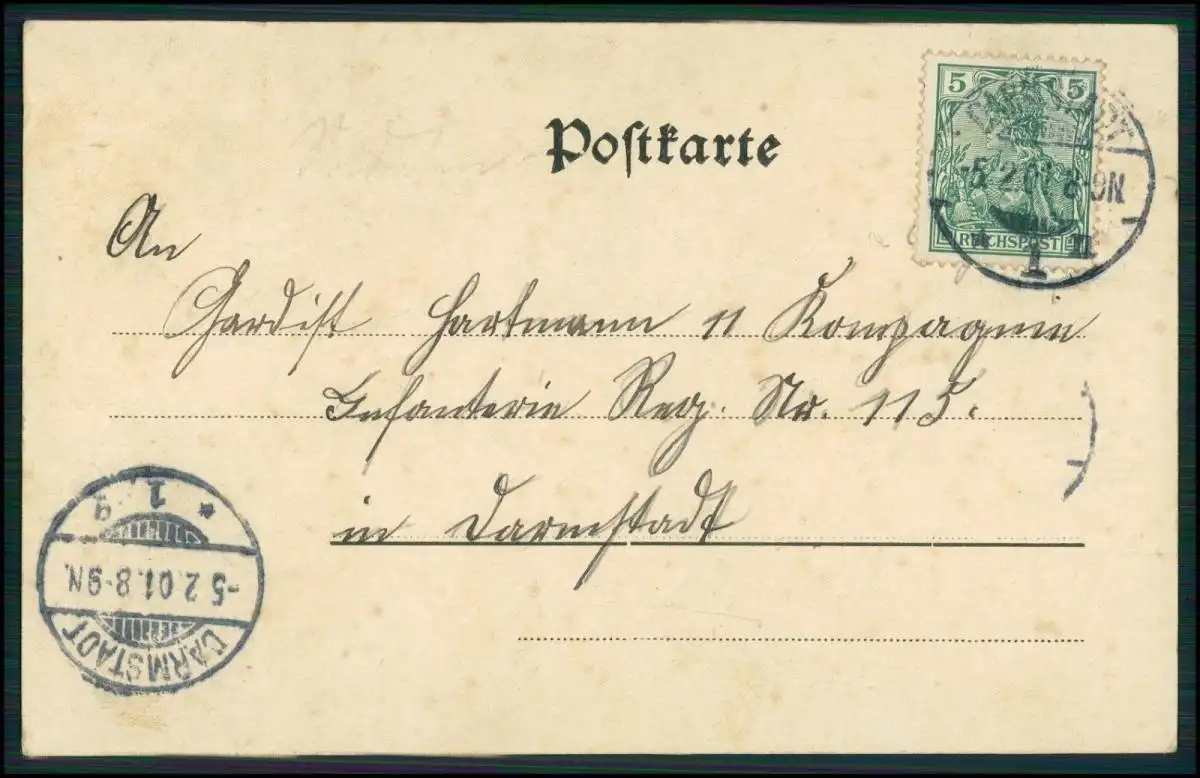 Postkarte
5 5
REICHSPOST
DARMSTADT
-5.2.01.8-9N
1 n
An
Gardist Hartmann 11 Kompagnie
Infanterie Reg. Nr. 115.
in Darmstadt
* 1 g
-5.2.01.8-9N.
DARMSTADT